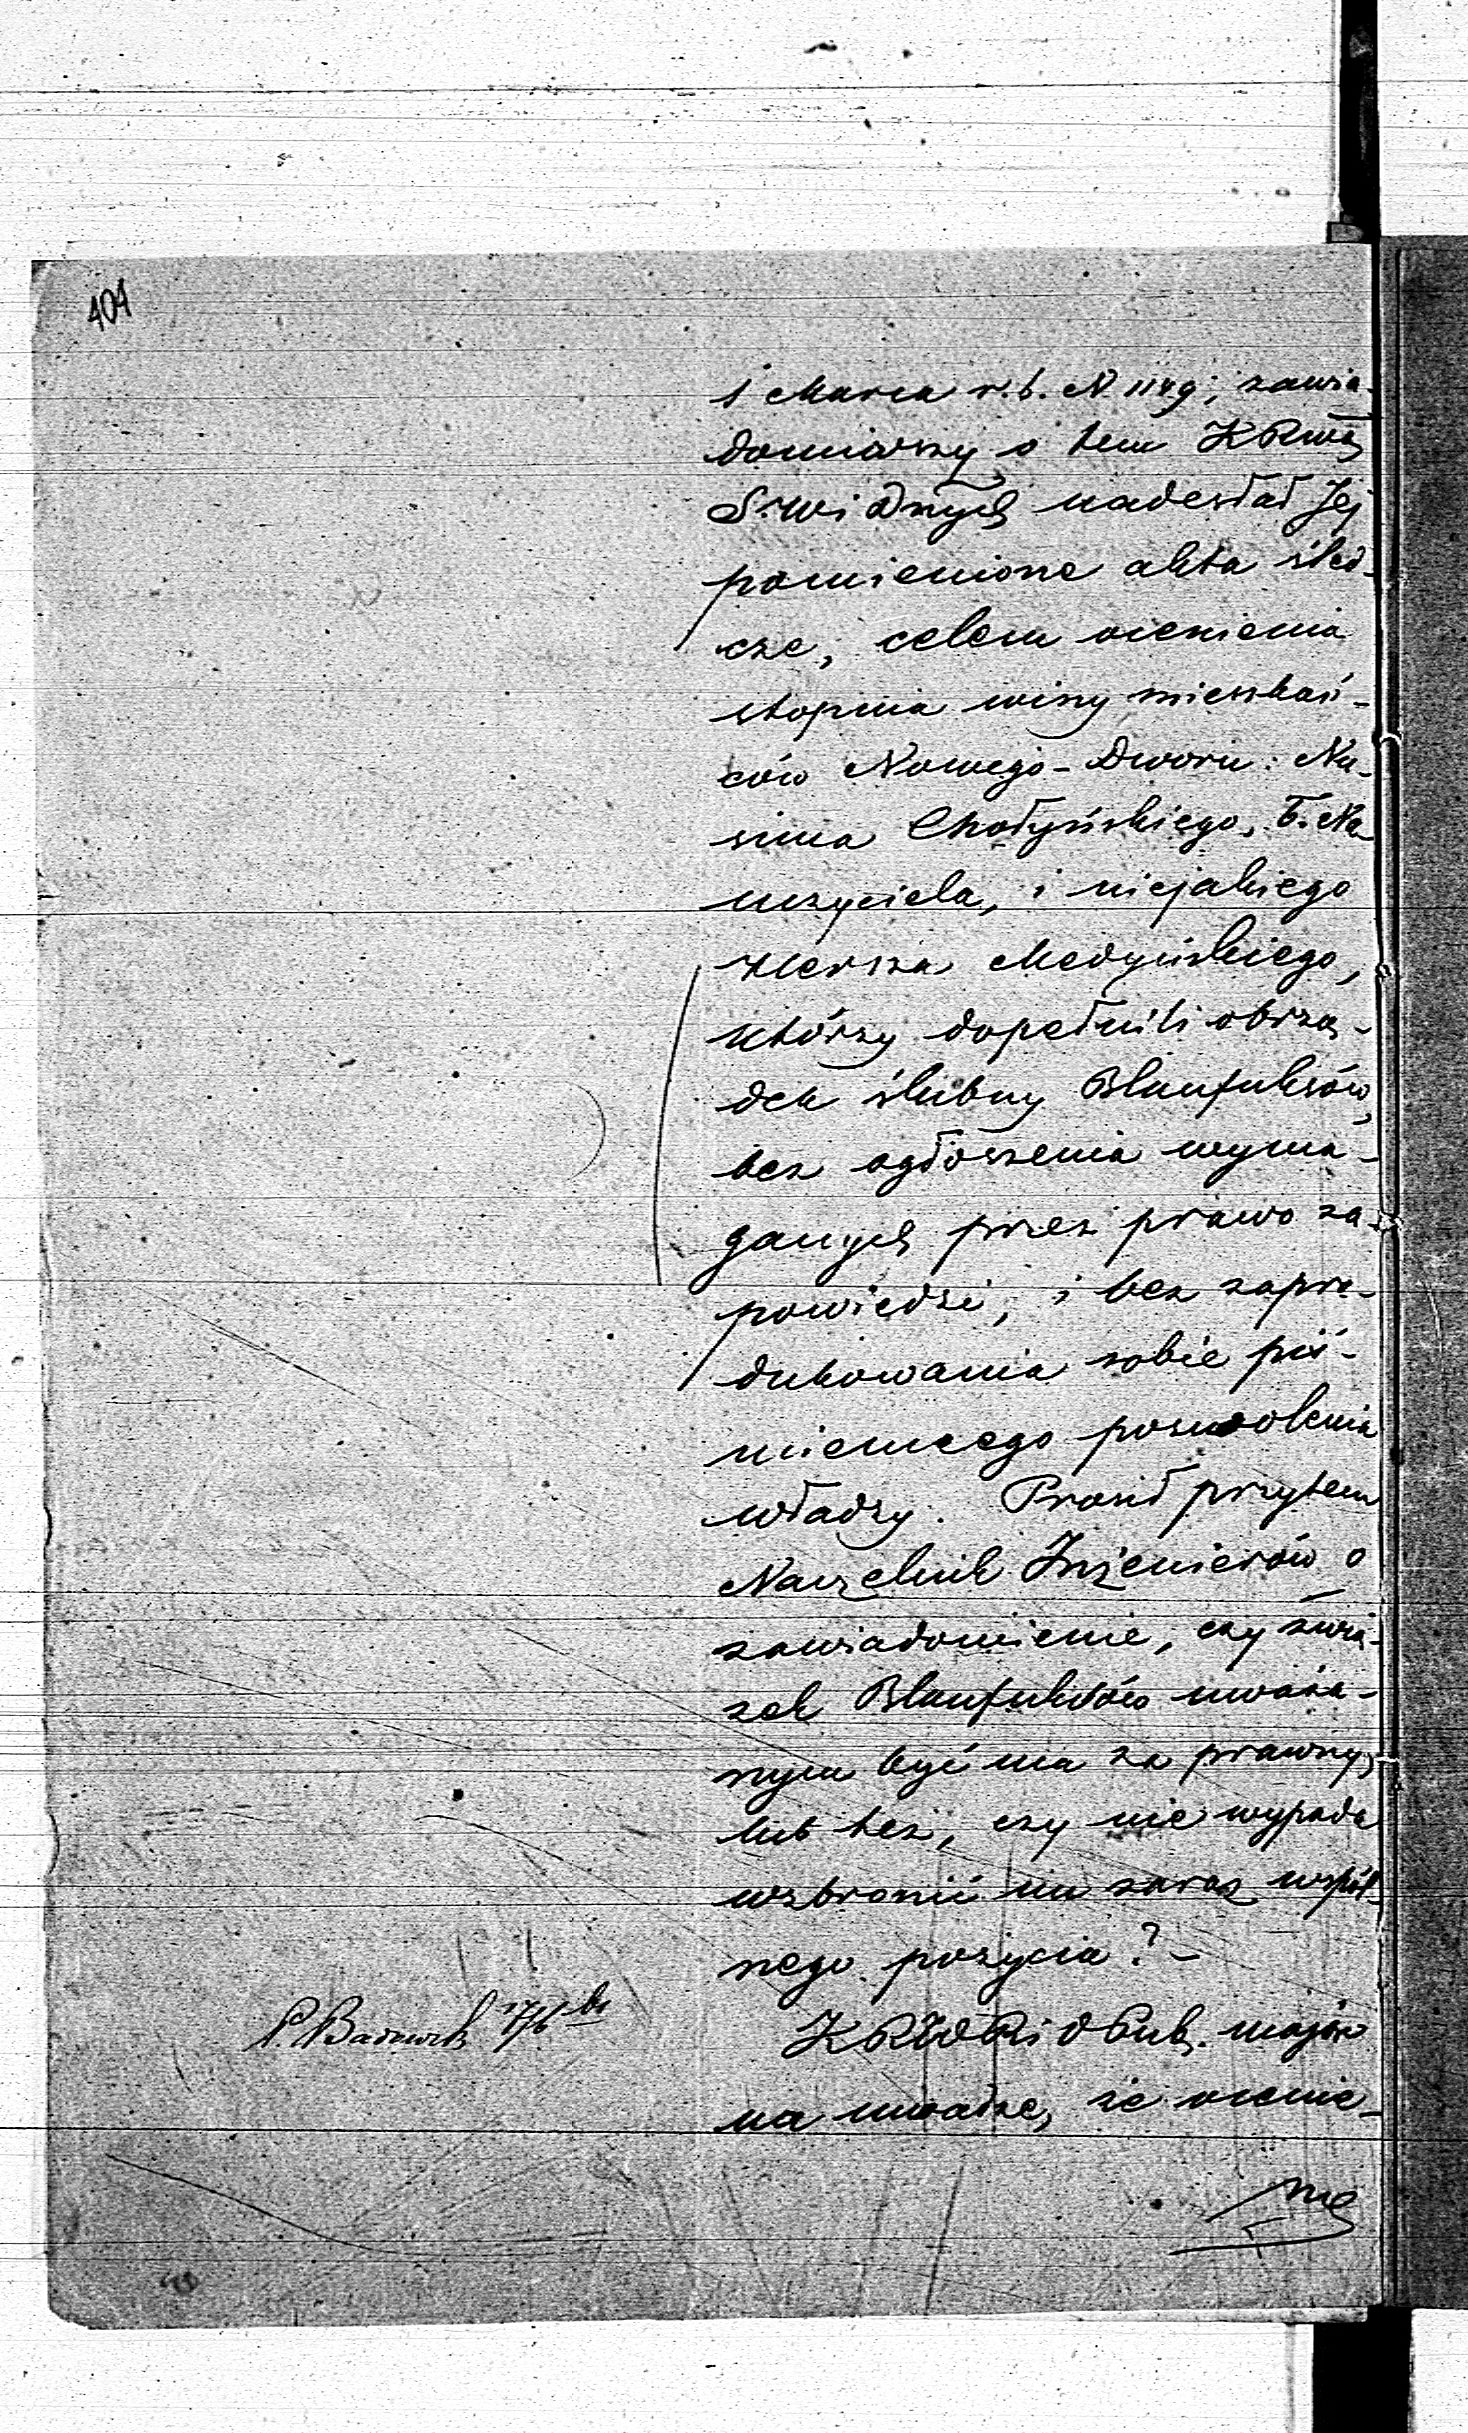 404
1 Marca r. b. N. 1149; zawia-
domiwszy o tem KRwą
S. Wi Dnych nadesłał Jej
pomienione akta śled-
cze, celem ocenienia
stopnia winy mieszkań-
ców Nowego-Dworu: Nu-
sima Chotyńskiego, T. Na
uczyciela, i niejakiego
Herszka Medyńskiego,
którzy dopełnili obrzą-
dek ślubny Blaufuksów,
bez ogłoszenia wyma-
ganych przez prawo za-
powiedzi, i bez zapro-
dukowania sobie piś-
miennego pozwolenia
władzy. Prosił przytem
Naczelnik Inżenierów o
zawiadomienie, czy zwią-
zek Blaufuksów uważa-
nym być ma za prawny,
lub też, czy nie wypada
wzbronić im zaraz wspól-
nego pożycia? -
KRWRiOPub. mając
na uwadze, że ocenie-
nie